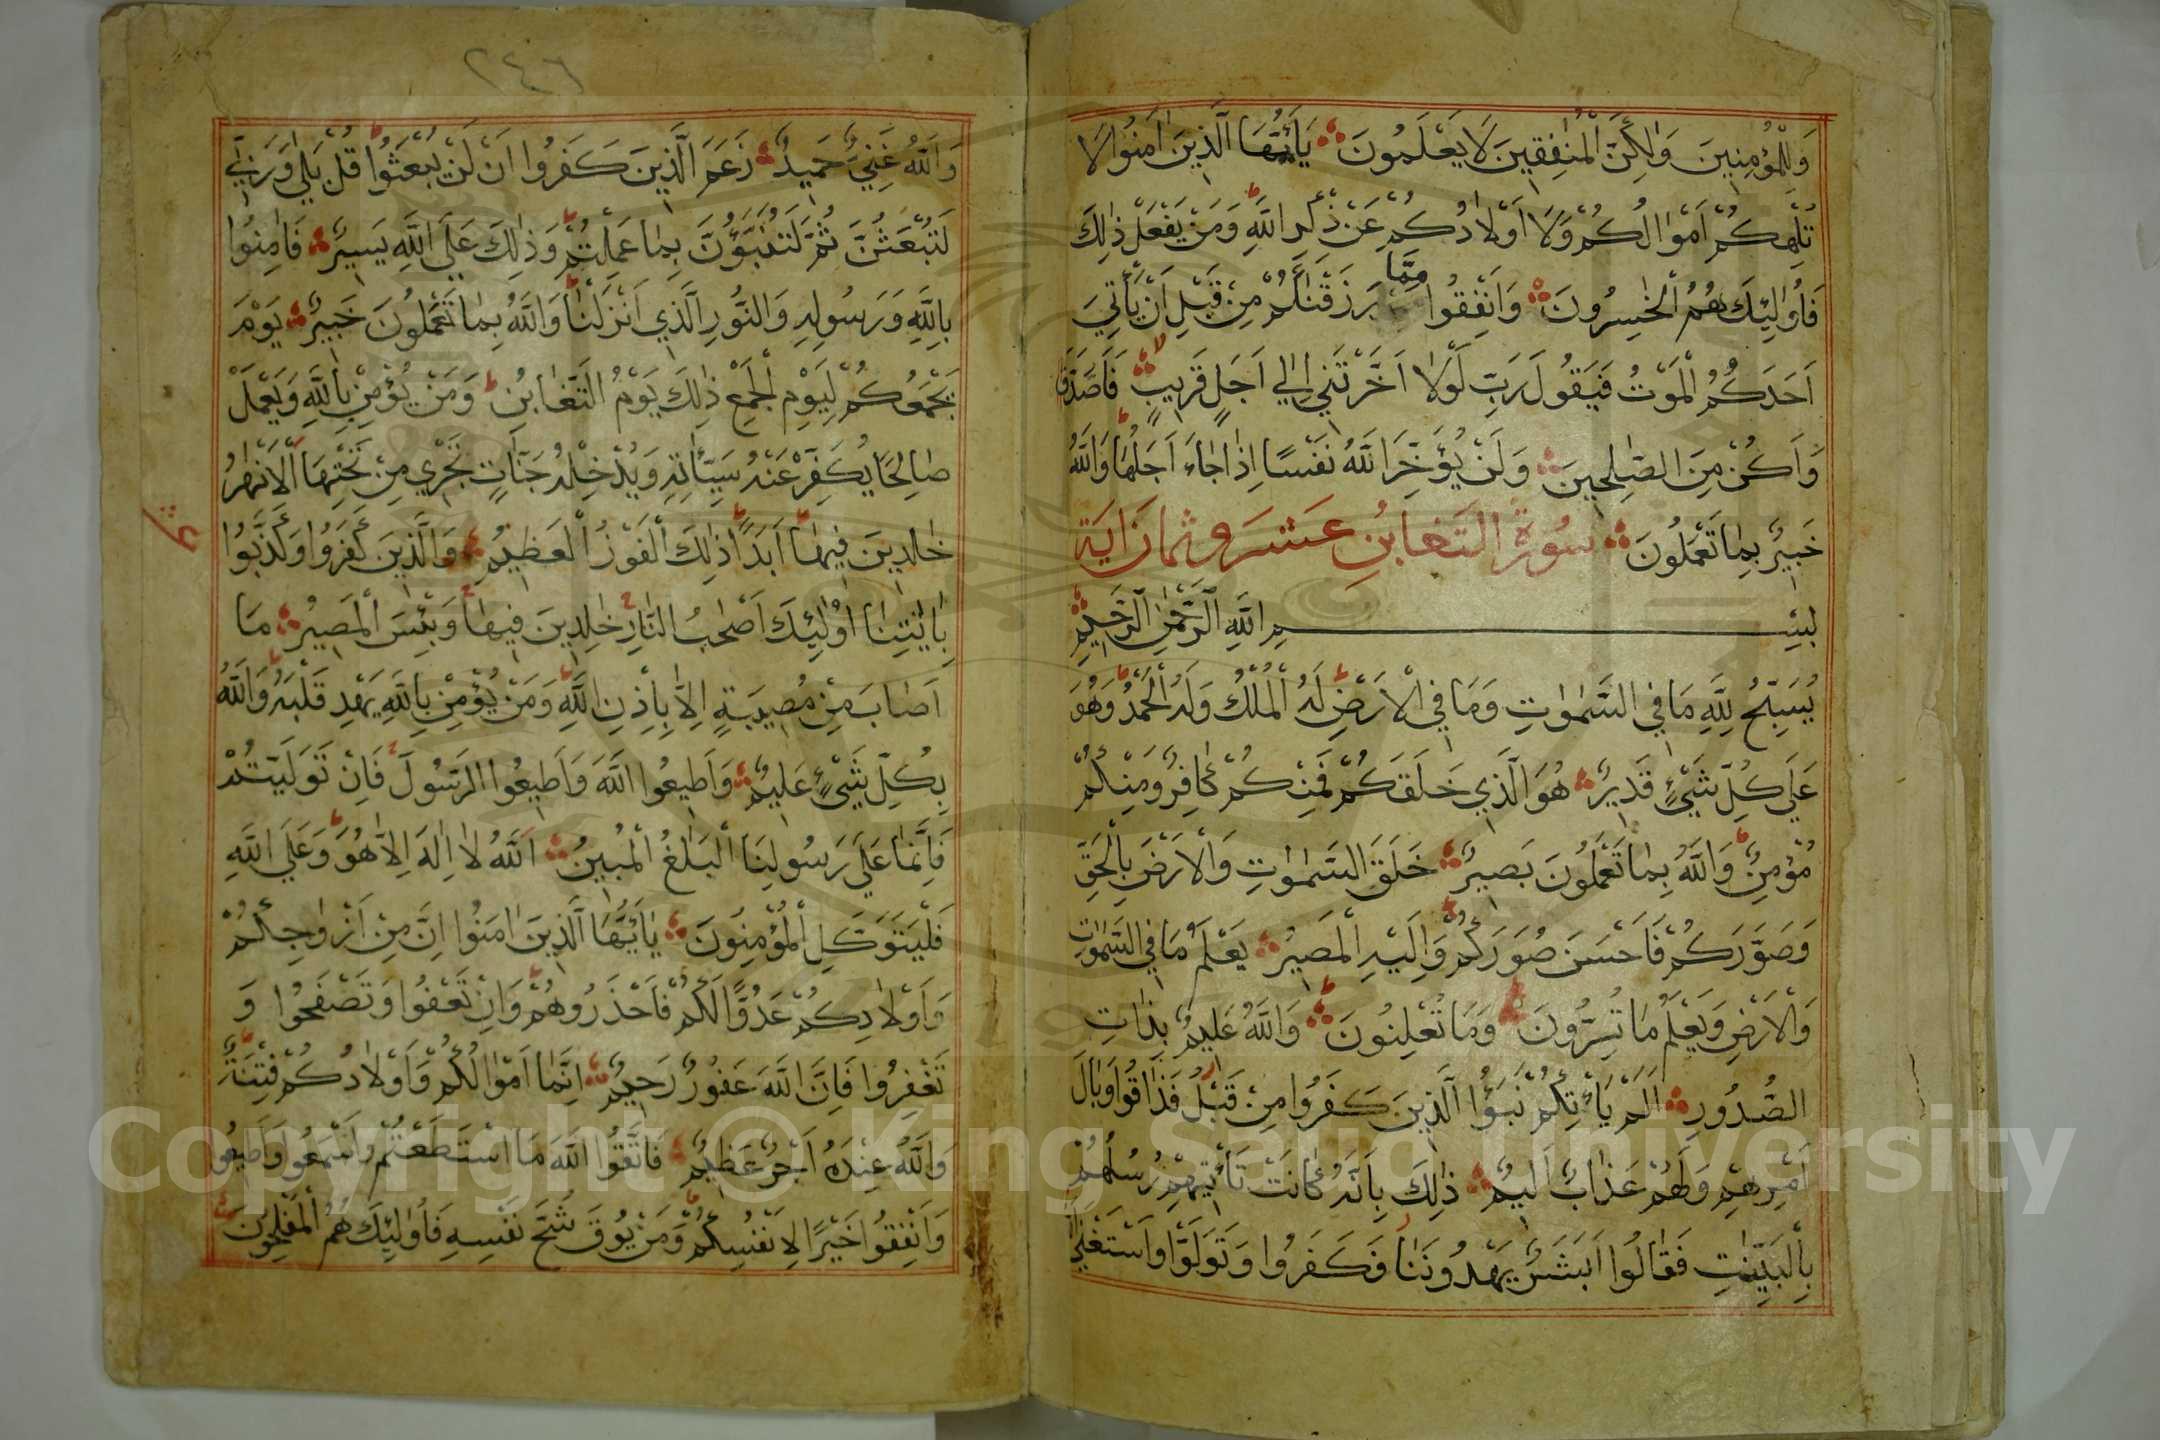 وَلِلْمُؤْمِنِينَ وَلٰكِنَّ الْمُنٰفِقِينَ لَا يَعْلَمُونَ يَآ اَيُّهَا الَّذِينَ اٰمَنُوا لَا
تُلْهِكُمْ اَمْوَالُكُمْ وَلَا اَوْلَادُكُمْ عَنْ ذِكْرِ اللّٰهِ وَمَنْ يَفْعَلْ ذٰلِكَ
فَاُولٰئِكَ هُمُ الْخٰسِرُونَ وَاَنْفِقُوا مِمَّا رَزَقْنَاكُمْ مِنْ قَبْلِ اَنْ يَأْتِيَ
اَحَدَكُمُ الْمَوْتُ فَيَقُولَ رَبِّ لَوْلَا اَخَّرْتَنِي اِلٰى اَجَلٍ قَرِيبٍ فَاَصَّدَّقَ
وَاَكُنْ مِنَ الصّٰلِحِينَ وَلَنْ يُؤَخِّرَ اللّٰهُ نَفْسًا اِذَا جَاءَ اَجَلُهَا وَاللّٰهُ
خَبِيرٌ بِمَا تَعْمَلُونَ سُورَةُ التَّغَابُنِ عَشَرَ وثمان اٰيَة
بِسْمِ اللّٰهِ الرَّحْمٰنِ الرَّحِيمِ
يُسَبِّحُ لِلّٰهِ مَا فِي السَّمٰوٰتِ وَمَا فِي الْاَرْضِ لَهُ الْمُلْكُ وَلَهُ الْحَمْدُ وَهُوَ
عَلٰى كُلِّ شَيْءٍ قَدِيرٌ هُوَ الَّذِي خَلَقَكُمْ فَمِنْكُمْ كَافِرٌ وَمِنْكُمْ
مُؤْمِنٌ وَاللّٰهُ بِمَا تَعْمَلُونَ بَصِيرٌ خَلَقَ السَّمٰوٰتِ وَالْاَرْضَ بِالْحَقِّ
وَصَوَّرَكُمْ فَاَحْسَنَ صُوَرَكُمْ وَاِلَيْهِ الْمَصِيرُ يَعْلَمُ مَا فِي السَّمٰوٰتِ
وَالْاَرْضِ وَيَعْلَمُ مَا تُسِرُّونَ وَمَا تُعْلِنُونَ وَاللّٰهُ عَلِيمٌ بِذَاتِ
الصُّدُورِ اَلَمْ يَأْتِكُمْ نَبَؤُا الَّذِينَ كَفَرُوا مِنْ قَبْلُ فَذَاقُوا وَبَالَ
اَمْرِهِمْ وَلَهُمْ عَذَابٌ اَلِيمٌ ذٰلِكَ بِاَنَّهُ كَانَتْ تَأْتِيهِمْ رُسُلُهُمْ
بِالْبَيِّنٰتِ فَقَالُوا اَبَشَرٌ يَهْدُونَنَا فَكَفَرُوا وَتَوَلَّوْا وَاسْتَغْنَى اللّٰهُ
٢٤٦
وَاللّٰهُ غَنِيٌّ حَمِيدٌ زَعَمَ الَّذِينَ كَفَرُوا اَنْ لَنْ يُبْعَثُوا قُلْ بَلٰى وَرَبِّي
لَتُبْعَثُنَّ ثُمَّ لَتُنَبَّؤُنَّ بِمَا عَمِلْتُمْ وَذٰلِكَ عَلَى اللّٰهِ يَسِيرٌ فَاٰمِنُوا
بِاللّٰهِ وَرَسُولِهِ وَالنُّورِ الَّذِي اَنْزَلْنَا وَاللّٰهُ بِمَا تَعْمَلُونَ خَبِيرٌ يَوْمَ
يَجْمَعُكُمْ لِيَوْمِ الْجَمْعِ ذٰلِكَ يَوْمُ التَّغَابُنِ وَمَنْ يُؤْمِنْ بِاللّٰهِ وَيَعْمَلْ
صَالِحًا يُكَفِّرْ عَنْهُ سَيِّئَاتِهِ وَيُدْخِلْهُ جَنَّاتٍ تَجْرِي مِنْ تَحْتِهَا الْاَنْهٰرُ
خَالِدِينَ فِيهَا اَبَدًا ذٰلِكَ الْفَوْزُ الْعَظِيمُ وَالَّذِينَ كَفَرُوا وَكَذَّبُوا
بِاٰيٰتِنَا اُولٰئِكَ اَصْحٰبُ النَّارِ خٰلِدِينَ فِيهَا وَبِئْسَ الْمَصِيرُ مَا
اَصَابَ مِنْ مُصِيبَةٍ اِلَّا بِاِذْنِ اللّٰهِ وَمَنْ يُؤْمِنْ بِاللّٰهِ يَهْدِ قَلْبَهُ وَاللّٰهُ
بِكُلِّ شَيْءٍ عَلِيمٌ وَاَطِيعُوا اللّٰهَ وَاَطِيعُوا الرَّسُولَ فَاِنْ تَوَلَّيْتُمْ
فَاِنَّمَا عَلٰى رَسُولِنَا الْبَلٰغُ الْمُبِينُ اَللّٰهُ لَا اِلٰهَ اِلَّا هُوَ وَعَلَى اللّٰهِ
فَلْيَتَوَكَّلِ الْمُؤْمِنُونَ يَا اَيُّهَا الَّذِينَ اٰمَنُوا اِنَّ مِنْ اَزْوَاجِكُمْ
وَاَوْلَادِكُمْ عَدُوًّا لَكُمْ فَاحْذَرُوهُمْ وَاِنْ تَعْفُوا وَتَصْفَحُوا وَ
تَغْفِرُوا فَاِنَّ اللّٰهَ غَفُورٌ رَحِيمٌ اِنَّمَا اَمْوَالُكُمْ وَاَوْلَادُكُمْ فِتْنَةٌ
وَاللّٰهُ عِنْدَهُ اَجْرٌ عَظِيمٌ فَاتَّقُوا اللّٰهَ مَا اسْتَطَعْتُمْ وَاسْمَعُوا وَاَطِيعُوا
وَاَنْفِقُوا خَيْرًا لِاَنْفُسِكُمْ وَمَنْ يُوقَ شُحَّ نَفْسِهِ فَاُولٰئِكَ هُمُ الْمُفْلِحُونَ
Copyright © King Saud University